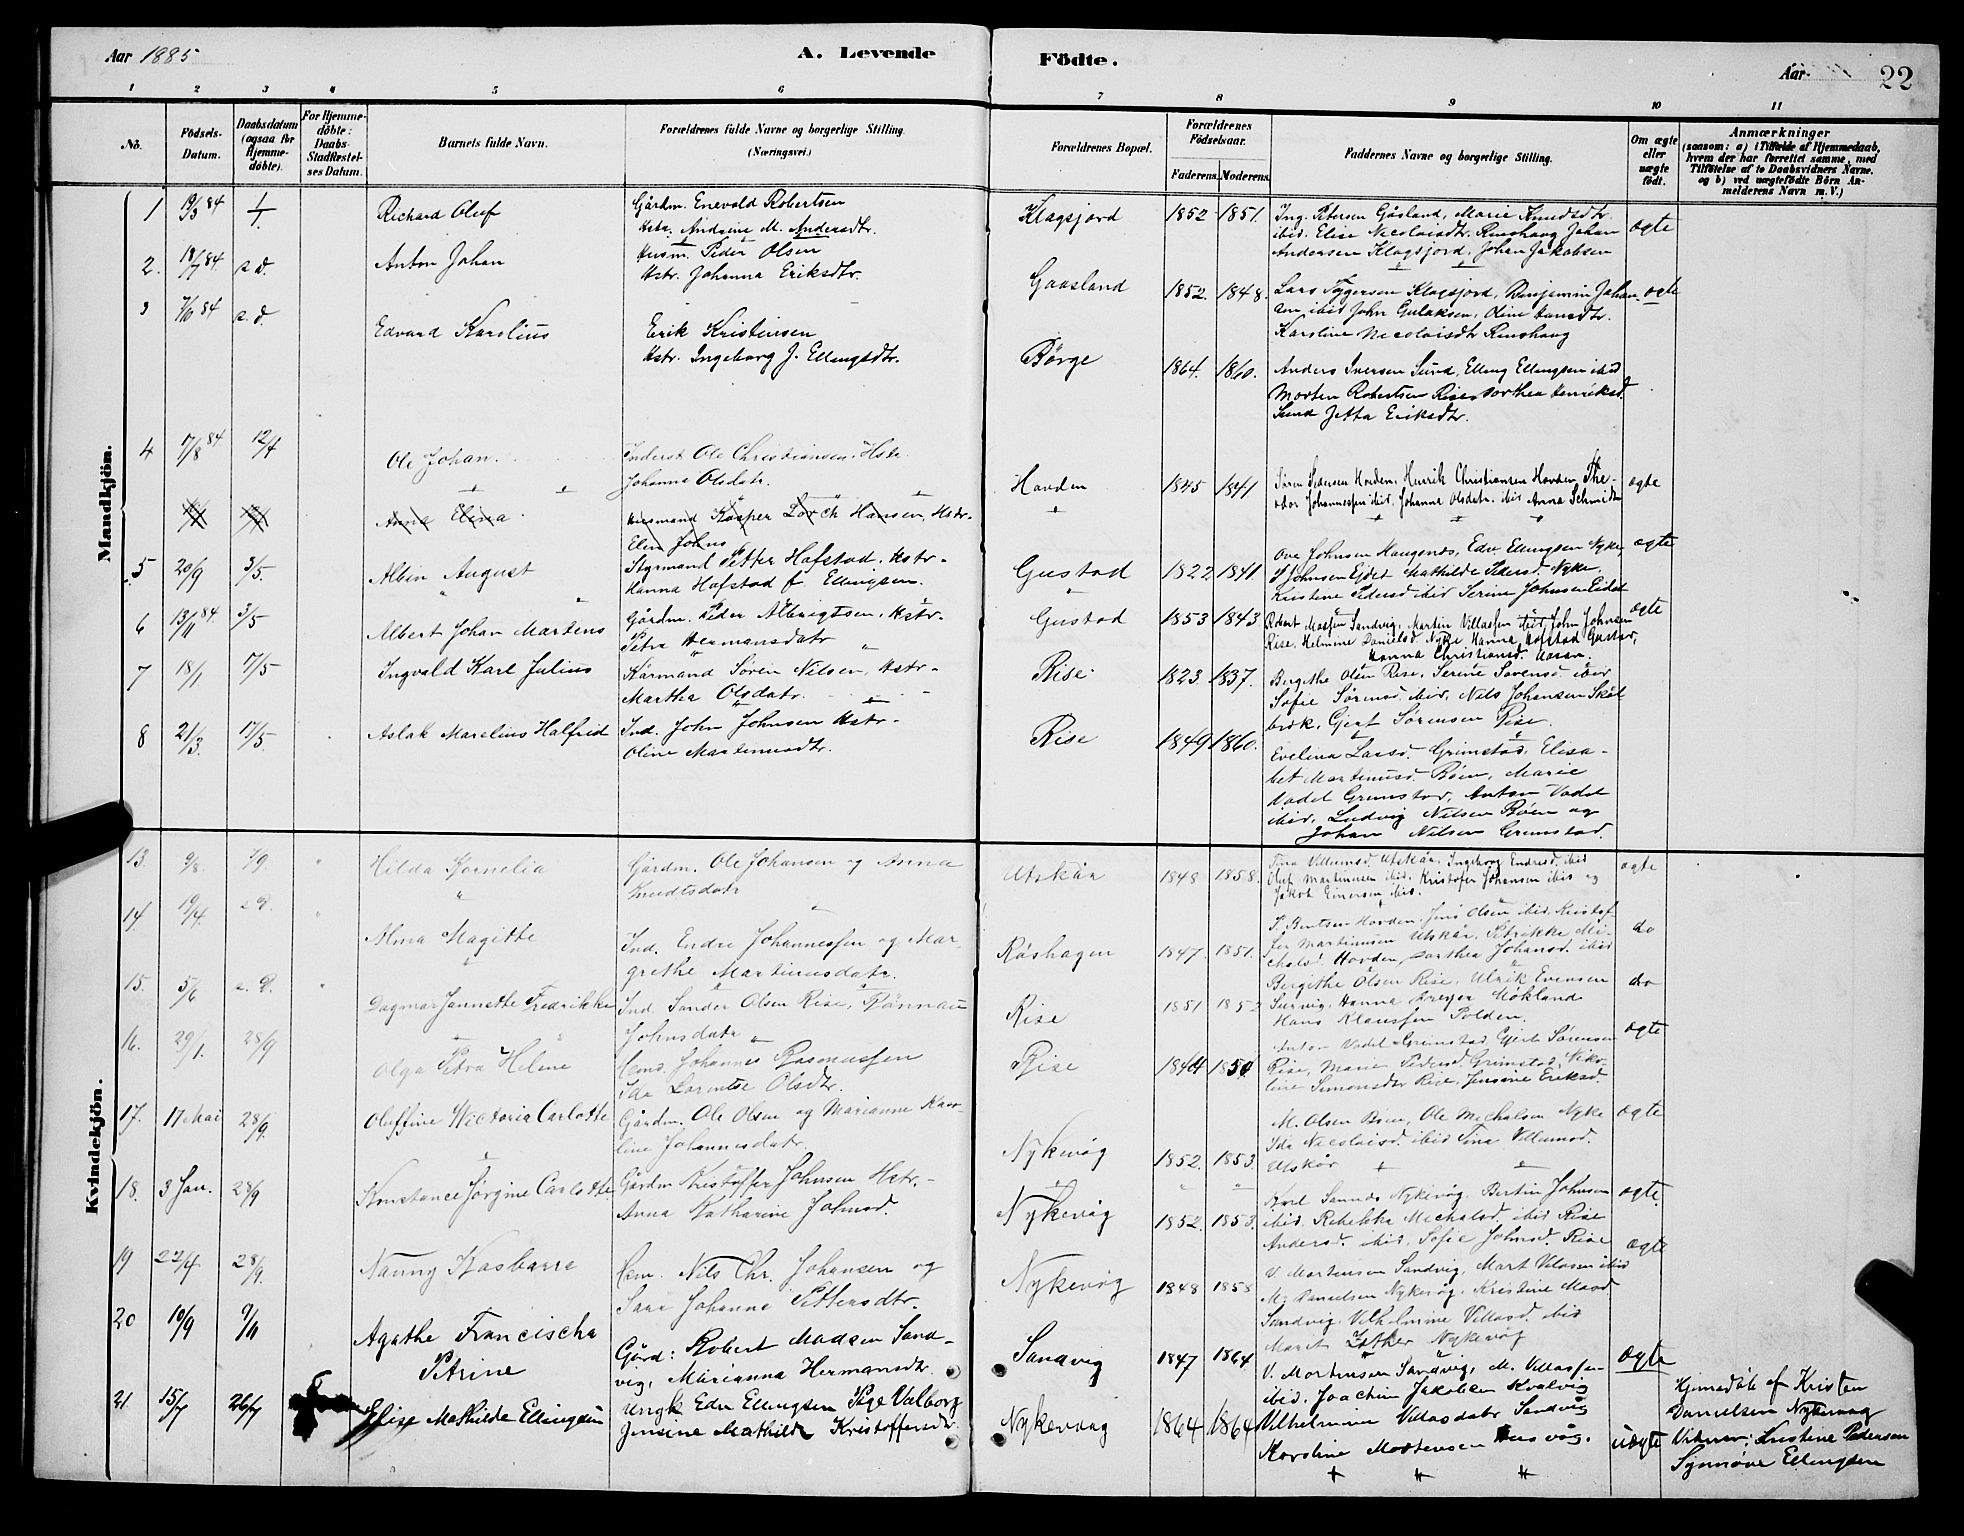 Aar 1885
A. Levende
Födte.
Aar
22
1 2 3 4 5 6 7 8 9 10 11
No.
Födsels-Datum.
Daabsdatum (ogsaa for Hjemme-döbte).
For Hjemme-döbte: Daabs-Stadfæstel-ses Datum.
Barnets fulde Navn.
Forældrenes fulde Navne og borgerlige Stilling.
(Næringsvei.)
Forældrenes Bopæl.
Forældrenes Födselsaar.
Faderens. Moderens.
Faddernes Navne og borgerlige Stilling.
Om ægte eller uægte födt.
Anmærkninger
(saasom: a) i Tilfælde af Hjemmedaab,
hvem der har forrettet samme, med
Tilföielse af to Daabsvidners Navne.
og b) ved uægtefödte Börn An-
melderens Navn m. V.)
Mandkjön.
1 19/3 84 1/1 Richard Oluf
Gårdm. Enevold Robertsen
Hstr. Andrine M. Andersdtr.
Klagsjord 1852 1851.
Ing. Petersen Gåsland, Marie Knudsdtr.
ibid. Elise Nicolaisdtr. Rinshaug Johan
Andersen Klagsjord, Johan Jakobsen
ægte
2. 18/7 84. s.d. Anton Johan
Husm. Peder Olsen
Hstr. Johanna Eriksdtr.
Gaasland 1852. 1848.
Lars Tygersen Klagsjord, Benjamin Johan
sen ibid John Gulaksen, Oline Hansdtr.
Karoline Nicolaisdtr Rinshaug
ægte
3 7/6 84 s.d. Edvard Karolius
Erik Kristensen
Hstr. Ingeborg J. Ellingsdtr.
Börge 1864. 1860.
Anders Iversen Sund, Elling Ellingsen ibid
Morten Robertsen Rise Dorthea Henriksd.
Sund Jetta Eriksdtr.
4 17/8 84. 12/4 Ole Johan.
Inderst Ole Christiansen, Hstr.
Johanna Olsdatr.
Hovden 1845 1841
Sören Pedersen Hovden, Henrik Christiansen Hovden, The-
odor Johannessen ibid. Johanna Olsdatr. ibid Anna Schmidt
ægte
Anna Elina
Husmand Kasper Lorch Hansen, Hstr.
Elen Johns
5 20/9 3/5. Albin August
Styrmand Petter Hofstad. Hstr.
Hanna Hofstad f. Ellingsen.
Gustad 1822 1841
Ove Johnsen Haugsnes, Edv Ellingsen Nyke,
J Johnsen Ejdet Mathilde Pedersd. Nyke.
Kristine Pedersd ibid Serine Johnsen Eidet
ægte
6 13/11 84. 3/5 Albert Johan Martens
Gårdm. Peder Albrigtsen. Hstr.
Petra Hermansdatr
Gustad 1853 1843
Robert Madsen Sandvig, Martin Villassen ibid, John Johnsen
Rise, Helmine Danielsd Nyke, Hanna Hofstad Gustad,
Hanna Christiansd.
ægte
7 18/1 17/5 Ingvald Karl Julius
Kårmand Sören Nilsen, Hstr.
Martha Olsdatr.
Rise 1823. 1837.
Bergithe Olsen Rise, Serine Sörensd ibid
Sofie Sörensd. ibid, Nils Johansen Skål
brek, Gert Sörensen Rise.
8 21/3. 17/5. Aslak Marelius Halfrid
Ind. John Johnsen Hstr.
Oline Martinusdtr.
Rise 1849 1860.
Evelina Larsd. Grimstad, Elisa-
bet Martinusd. Böen, Marie
Vadet Grimstad, Anton Vadet
ibid, Ludvig Nilsen Böen og
Johan Nilsen Grimstad.
Kvindekjön.
13. 9/8. 7/9 Hilda Kornelia
Gårdm. Ole Johansen og Anna
Knudtsdatr
Utskår 1848 1858.
Tina Villumsd Utskår, Ingeborg Endresd. ibid
Oluf Martinusen ibid. Kristofer Johansen ibid og
Jakob Einersen ibid.
ægte
14 19/4. s.d. Alma Magitte
Ind. Endre Johannessen og Mar-
grethe Martinusdatr.
Röshagen 1847. 1851.
P. Bentsen Hovden, Jens Olsen ibid. Kristof-
fer Martinusen Utskår, Petrikke Mi-
chalsd. Hovden, Dorthea Johansd. ibid
do
15. 5/6 s.d. Dagmar Jannette Fredrikke
Ind. Sander Olsen Rise, Rönnau
Johnsdatr
Rise 1851 1852
Bergithe Olsen Rise, Ulrik Evensen
Hanna Dreyer Mökland
Hans Klaussen Polden.
do
16. 29/1. 28/9 Olga Petra Helene
Johannes Rasmussen
Ida Larentse Olsdtr.
Rise 1844 1854
Anton Vadet Grimstad Gjert Sörensen
Rise, Marie Pedersd Grimstad, Niko-
line Simonsdtr Rise, Jensine Eriksd.
ægte
17. 17 Mai 28/9. Oluffine Wictoria Carlotte
Gårdm. Ole Olsen og Marianne Karo-
line Johannesdatr
Nykevåg 1852. 1853.
M. Olsen Böen, Ole Michalsen Nyke
Ida Nicolaisd. ibid Tina Villumsd.
Utskår
ægte
18. 3 Jan. 28/9 Konstance Jörgine Carlotte
Gårdm Kristoffer Johnsen Hstr.
Anna Katharine Johnsd.
Nykevåg 1852. 1853.
Karl Sannes Nykevåg, Bertin Johnsen
ibid. Rebekka Michalsd. ibid Rise
Andersd. ibid. Sofie Johnsd. Rise
ægte
19 22/4 28/9. Nanny Kasbarra
Nils Chr. Johansen og
Sara Johanne Pettersdtr.
Nykevåg 1848 1858
V. Mortensen Sandvig, Mart Vilasen ibid
M. Danielsen Nykevåg, Kristine Mand
Sandvig, Vilhelmine Villasd. ibid
Marit Nykevåg
ægte
20 10/9 9/11 Agathe Francischa
Petrine
Gård: Robert Madsen Sand-
vig, Marianna Hermansdtr.
Sandvig 1847 1864
V. Mortensen Sandvig, M. Villassen
ibid. Joachim Jakobsen Kvalvig
Vilhelmine Villasdatr Sandvig
Karoline Mortensen
ægte
21 15/7 26/7 Elise Mathilde Ellingsen
Ungk Edv Ellingsen Pige Valborg
Jensine Mathilde Kristoffersdtr
Nykevaag 1864 1864
uægte
Hjemedöb. af Kristen
Danielsen Nykevaag
Vidner: Kristine Pedersen
Synnöve Ellingsen